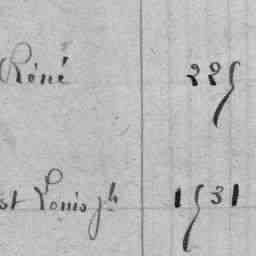 Réné 225
st Louis jh 1531